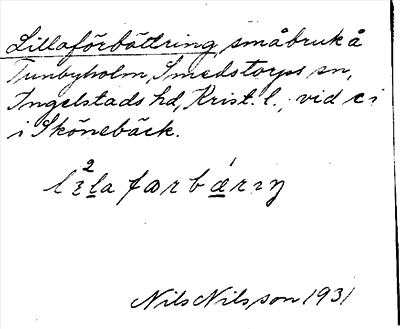 Lillaförbättring, småbruk å
Tunbyholm, Smedstorps sn,
Ingelstads hd, Krist. l., vid c i
i Skönebäck.
2
Nils Nilsson 1931